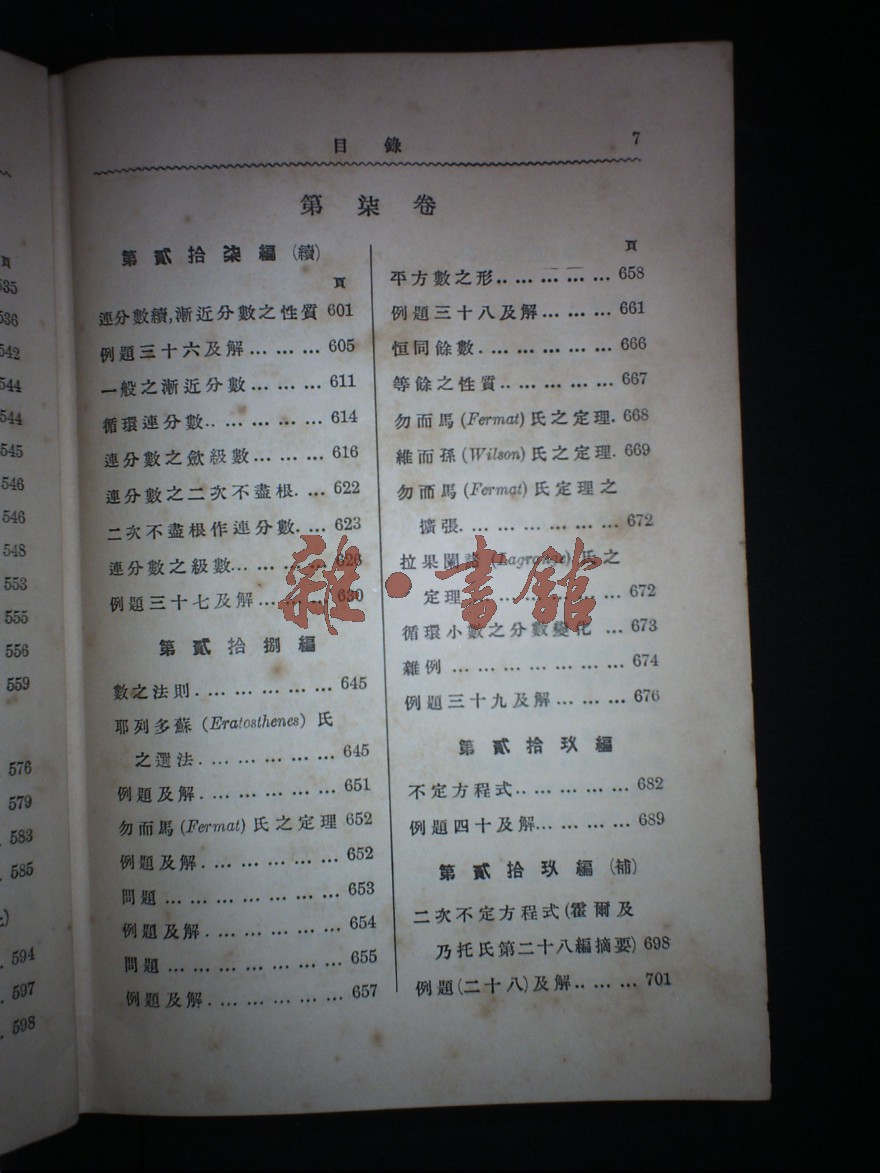 目錄 7
第柒卷
第貳拾柒編(續)
頁
連分數續,漸近分數之性質 601
例題三十六及解 ... ... ... 605
一般之漸近分數 ... ... ... 611
循環連分數.. ... ... ... ... 614
連分數之斂級數... ... ... 616
連分數之二次不盡根. ... 622
二次不盡根作連分數. ... 623
連分數之級數... ... ... ... 626
例題三十七及解... ... ... 630
第貳拾捌編
數之法則. ... ... ... ... ... 645
耶列多蘇(Eratosthenes)氏
之選法. ... ... ... ... ... 645
例題及解. ... ... ... ... ... 651
勿而馬(Fermat)氏之定理 652
例題及解. ... ... ... ... ... 652
問題 ... ... ... ... ... ... 653
例題及解. ... ... ... ... ... 654
問題 ... ... ... ... ... ... 655
例題及解. ... ... ... ... ... 657
頁
平方數之形.. ... ... ... ... 658
例題三十八及解... ... ... 661
恒同餘數. ... ... ... ... ... 666
等餘之性質.. ... ... ... ... 667
勿而馬(Fermat)氏之定理. 668
維而孫(Wilson)氏之定理. 669
勿而馬(Fermat)氏定理之
擴張. ... ... ... ... ... ... 672
拉果闌諸(Lagrange)氏之
定理 ... ... ... ... ... ... 672
循環小數之分數變化 ... 673
雜例 ... ... ... ... ... ... 674
例題三十九及解... ... ... 676
第貳拾玖編
不定方程式.. ... ... ... ... 682
例題四十及解... ... ... ... 689
第貳拾玖編(補)
二次不定方程式(霍爾及
乃托氏第二十八編摘要) 698
例題(二十八)及解.. ... ... 701
頁
535
536
542
544
544
545
546
546
548
553
555
556
559
576
579
583
585
594
597
598
雜·書館